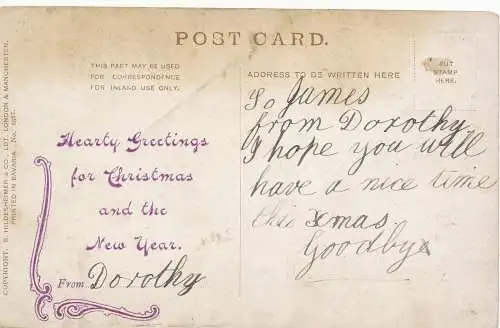 POST CARD.
THIS PART MAY BE USED
FOR CORRESPONDENCE
FOR INLAND USE ONLY.
ADDRESS TO BE WRITTEN HERE
PUT
STAMP
HERE.
COPYRIGHT. S. HILDESHEIMER & CO., LTD. LONDON & MANCHESTER.
PRINTED IN BAVARIA. No.
Hearty Greetings
for Christmas
and the
New Year.
From Dorothy
To James
from Dorothy
I hope you will
have a nice time
this Xmas.
Goodbye